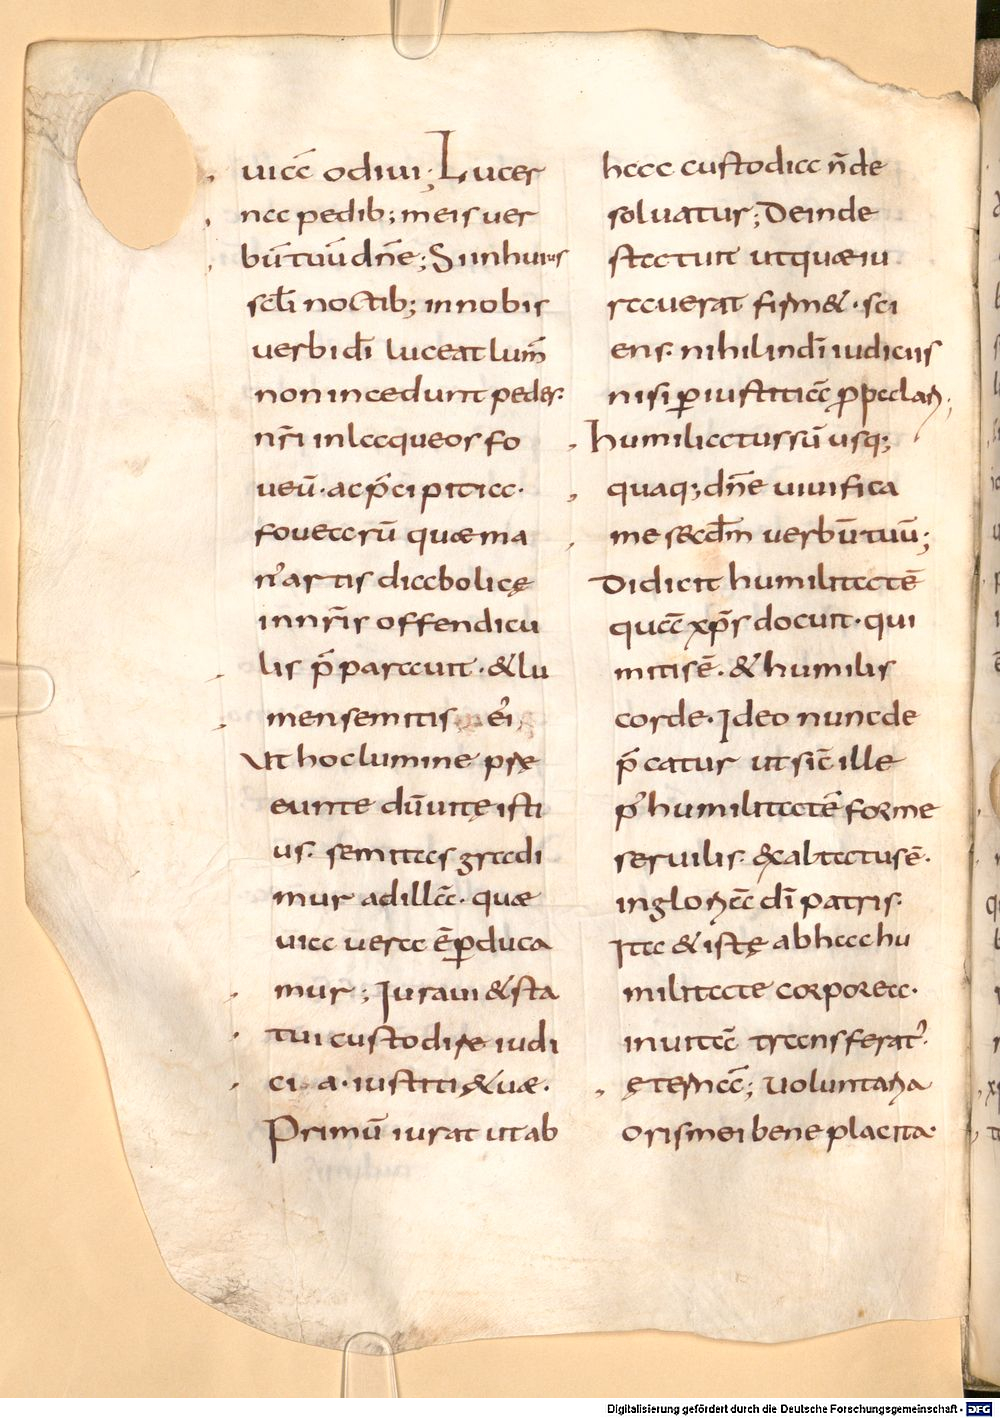 uiā odiui; Lucer
na pedib; meis uer
bū tuū dn̄e; Si in huius
scl̄i noctib; in nobis
uerbi dī luceat lum̄
non incedunt pedes
nr̄i in laqueos fo
ueū · ac p̄cipitia ·
fouearū quae ma
nꝰ artis diabolicę
in nr̄is offendicu
lis p̄parauit · & lu
men semitis eꝰi
Ut hoc lumine prę
eunte dū uitę isti
us · semitas gradi
mur ad illā · quae
uia uera ē perduca
mur; Iuraui & sta
tui custodire iudi
cia · iustiti&uae ·
Primū iurat ut ab
hac custodia n̄ de
soluatur; Deinde
statuit ut quae iu
rauerat firm& · sci
ens · nihil in dī iudiciis
nisi ꝑ iustitiā
Humiliatus sū usq;
quaq; dn̄e uiuifica
me secdm̄ uerbū tuū;
Didicit humilitatē
quā xp̄s docuit · qui
mitis ē · & humilis
corde · Ideo nunc de
p̄catur ut sic̄ ille
pꝰ humilitatē formę
seruilis · exaltatus ē ·
in gloriā dī patris ·
Ita & iste ab hac hu
militate corporea ·
in uitā transferatꝰ ·
ęternā; Uoluntaria
oris mei bene placita ·
Digitalisierung gefördert durch die Deutsche Forschungsgemeinschaft · DFG